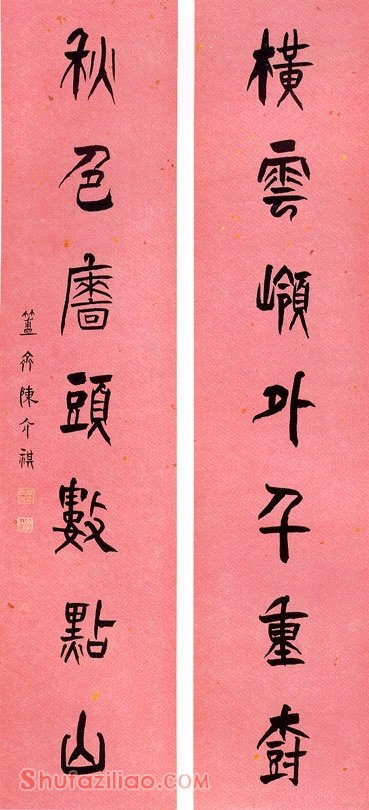 橫雲嶺外千重樹
秋色牆頭數點山
簠齊陳介祺
Shufaziliao.com